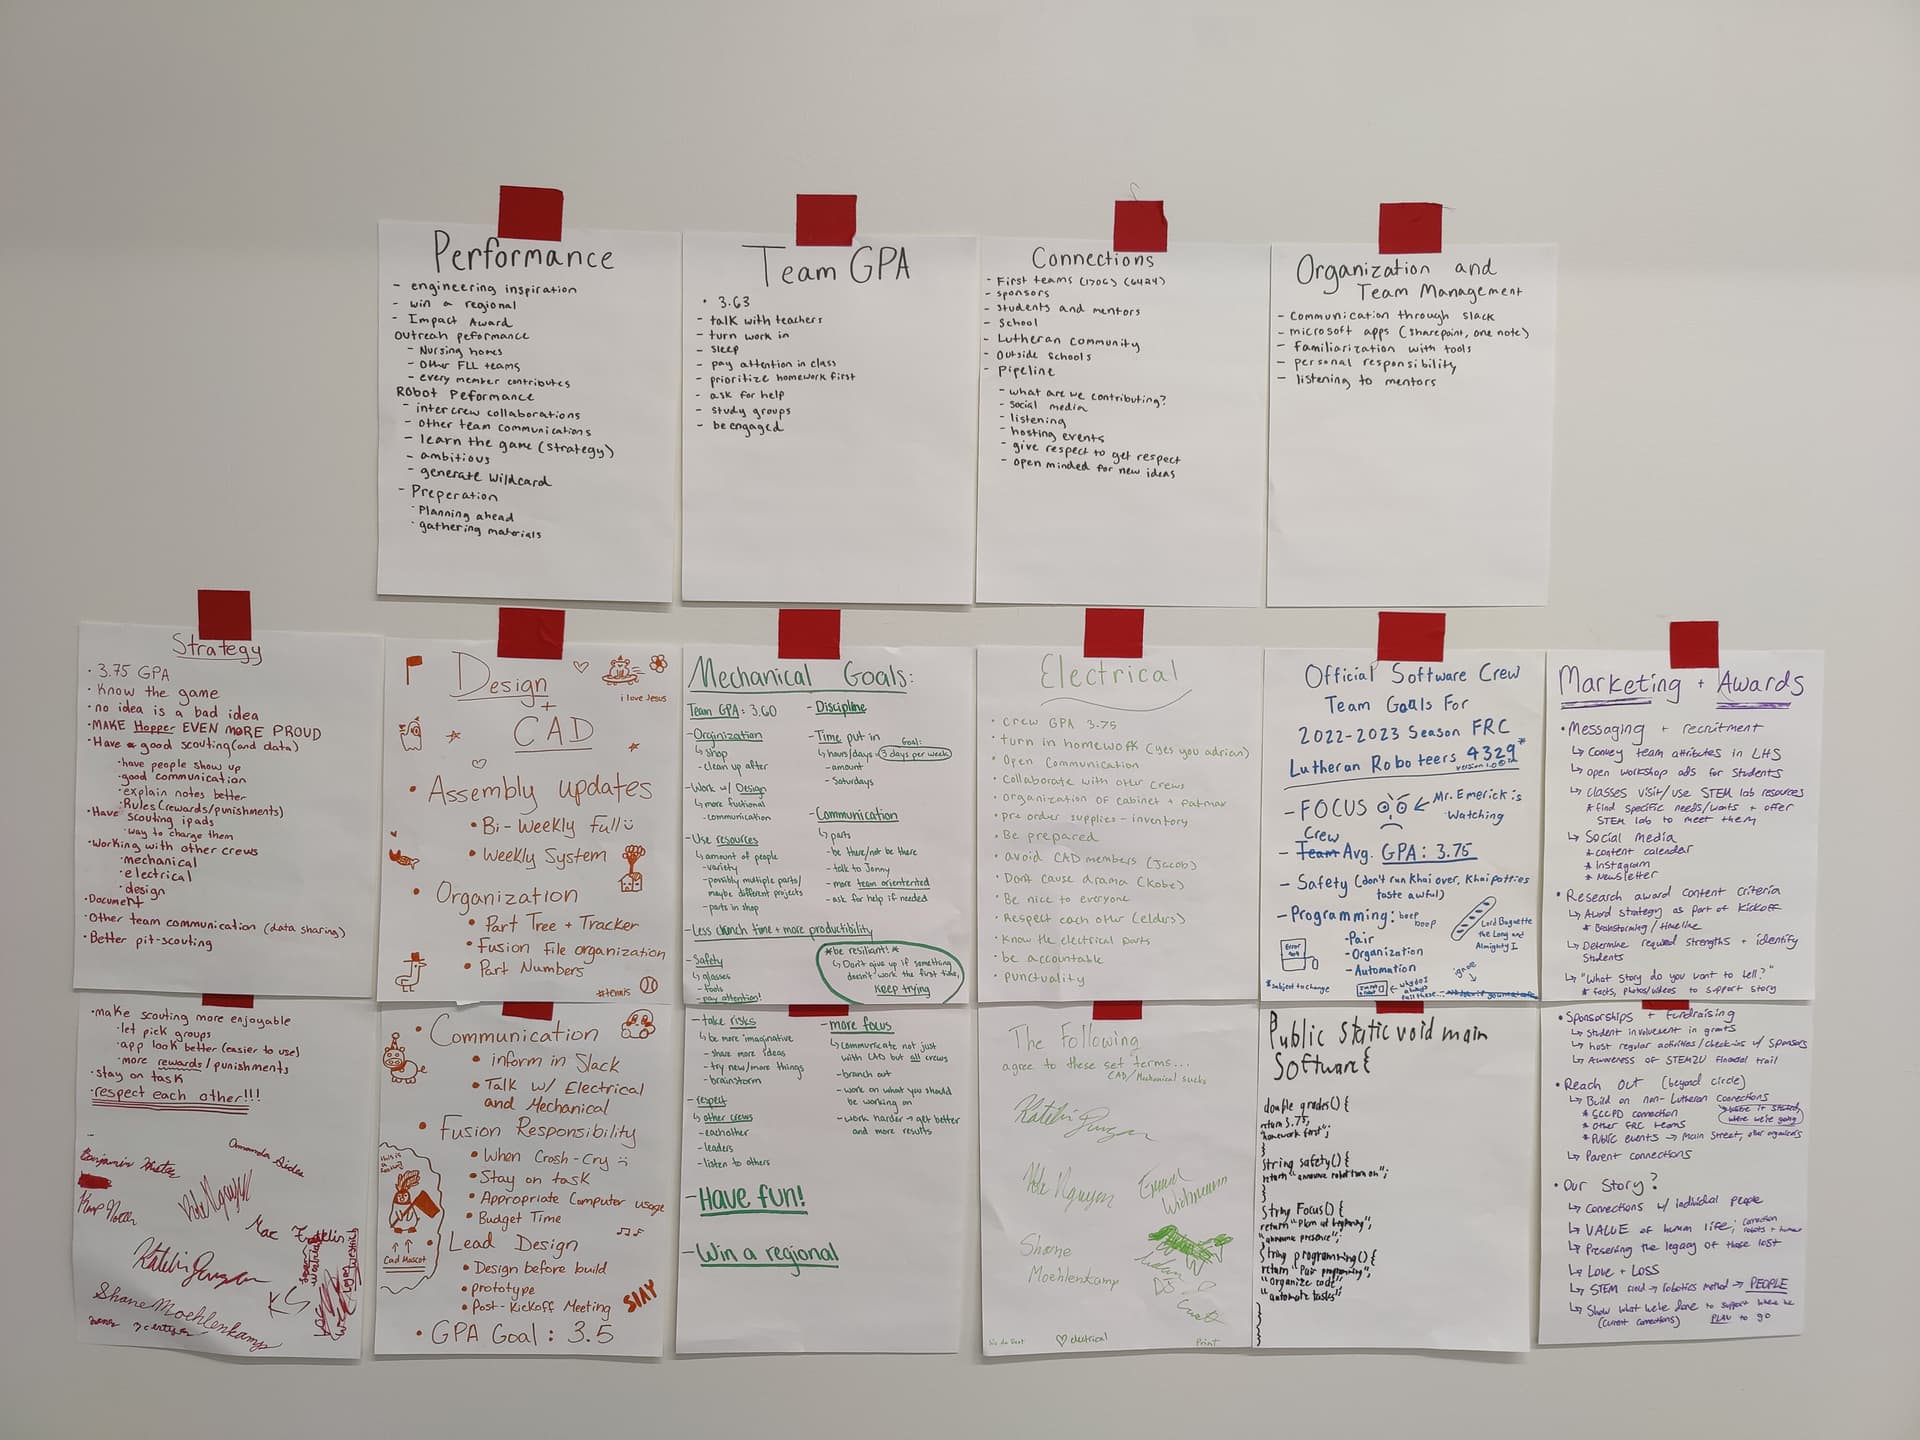 Performance
- engineering inspiration
- win a regional
- Impact Award
Outreah peformance
- Nursing homes
- Other FLL teams
- every member contributes
Robot Peformance
- inter crew collaborations
- other team communications
- learn the game (strategy)
- ambitious
- generate wildcard
- Preperation
· Planning ahead
· gathering materials
Team GPA
· 3.63
- talk with teachers
- turn work in
- sleep
- pay attention in class
- prioritize homework first
- ask for help
- study groups
- be engaged
Connections
- First teams (1706) (6424)
- sponsors
- students and mentors
- School
- Lutheran community
- Outside schools
- Pipeline
- what are we contributing?
- social media
- listening
- hosting events
- give respect to get respect
- open minded for new ideas
Organization and
Team Management
- communication through slack
- microsoft apps (sharepoint, one note)
- familiarization with tools
- personal responsibility
- listening to mentors
Strategy
· 3.75 GPA
· Know the game
· no idea is a bad idea
· MAKE Hopper EVEN MORE PROUD
· Have good scouting (and data)
· have people show up
· good communication
· explain notes better
· Rules (rewards/punishments)
· Have scouting ipads
· way to charge them
· Working with other crews
· mechanical
· electrical
· design
· Document
· Other team communication (data sharing)
· Better pit-scouting
· make scouting more enjoyable
· let pick groups
· app look better (easier to use)
· more rewards/punishments
· stay on task
· respect each other!!!
Shane Moehlenkamp
Design
+
CAD
i love Jesus
• Assembly updates
• Bi-Weekly Full
• Weekly System
• Organization
• Part Tree + Tracker
• Fusion File organization
• Part Numbers
#tennis
• Communication
• inform in Slack
• Talk w/ Electrical
and Mechanical
• Fusion Responsibility
• When Crash-Cry
• Stay on task
• Appropriate Computer usage
• Budget Time
Cad Mascot
• Lead Design
• Design before build
• prototype
• Post-Kickoff Meeting
SLAY
• GPA Goal: 3.5
Mechanical Goals:
Team GPA: 3.60
- Orginization
↳ shop
- clean up after
- Work w/ Design
↳ more fuctional
- communication
- Use resources
↳ amount of people
- variety
- possibly multiple parts/
maybe different projects
- parts in shop
- Less crunch time + more productibility
- Safety
↳ glasses
- tools
- pay attention!
- Discipline
- Time put in
Goal:
↳ hours/days - 3 days per week
- amount
- Saturdays
- Communication
↳ parts
- be there/not be there
- talk to Jonny
- more team orientented
- ask for help if needed
*be resiliant!*
↳ Don't give up if something
doesn't work the first time,
Keep trying
- take risks
↳ be more imaginative
- share more ideas
- try new/more things
- brainstorm
- respect
↳ other crews
- eachother
- leaders
- listen to others
- more focus
↳ communicate not just
with CAD but all crews
- branch out
- work on what you should
be working on
- work harder → get better
and more results
- Have fun!
- Win a regional
Electrical
· Crew GPA 3.75
· turn in homework (yes you adrian)
· Open Communication
· Collaborate with other Crews
· organization of cabinet + patmax
· pre order supplies - inventory
· Be prepared
· avoid CAD members (Jacob)
· Don't cause drama (Kobe)
· Be nice to everyone
· Respect each other (elders)
· Know the electrical parts
· be accountable
· punctuality
The Following
agree to these set terms...
CAD/Mechanical sucks
Kobe Nguyen
Shane
Moehlenkamp
♡ electrical
Print
Official Software Crew
Team Goals For
2022-2023 Season FRC
Lutheran Roboteers 4329*
- FOCUS ← Mr. Emerick is
Watching
Crew
- Team Avg. GPA: 3.75
- Safety (don't run Khai over, Khai patties
taste awful)
- Programming: beep
boop
- Pair
- Organization
- Automation
Lord Baguette
the Long and
Almighty I
Error
404
*subject to change
ignore
Public static void main
Software{
double grades() {
return 3.75;
"homework first";
}
String safety() {
return "announce robot turn on";
}
String Focus() {
return "Plan at beginning";
"announce presence";
String programming() {
return "Pair programming";
"Organize code"
"automate tasks"
Marketing + Awards
• Messaging + recruitment
↳ Convey team attributes in LHS
↳ Open workshop ads for students
↳ classes visit/use STEM lab resources
* find specific needs/wants + offer
STEM lab to meet them
↳ Social media
* content calendar
* Instagram
* Newsletter
• Research award content criteria
↳ Award strategy as part of Kickoff
* Brainstorming/timeline
↳ Determine required strengths + identify
students
↳ "What story do you want to tell?"
* facts, photos/videos to support story
• Sponsorships + Fundraising
↳ Student involvement in grants
↳ host regular activities/check-ins w/ sponsors
↳ Awareness of STEM2U financial trail
• Reach out (beyond circle)
↳ Build on non-Lutheran connections
* SCCPD connection
* other FRC teams
* Public events → Main Street, other organizers
↳ Parent connections
where it started
where we're going
• Our Story?
↳ Connections w/ individual people
↳ VALUE of human life; connection
robots + human
↳ Preserving the legacy of those lost
↳ Love + Loss
↳ STEM field → robotics method → PEOPLE
↳ Show what we've done to support where we
(current connections) PLAN to go